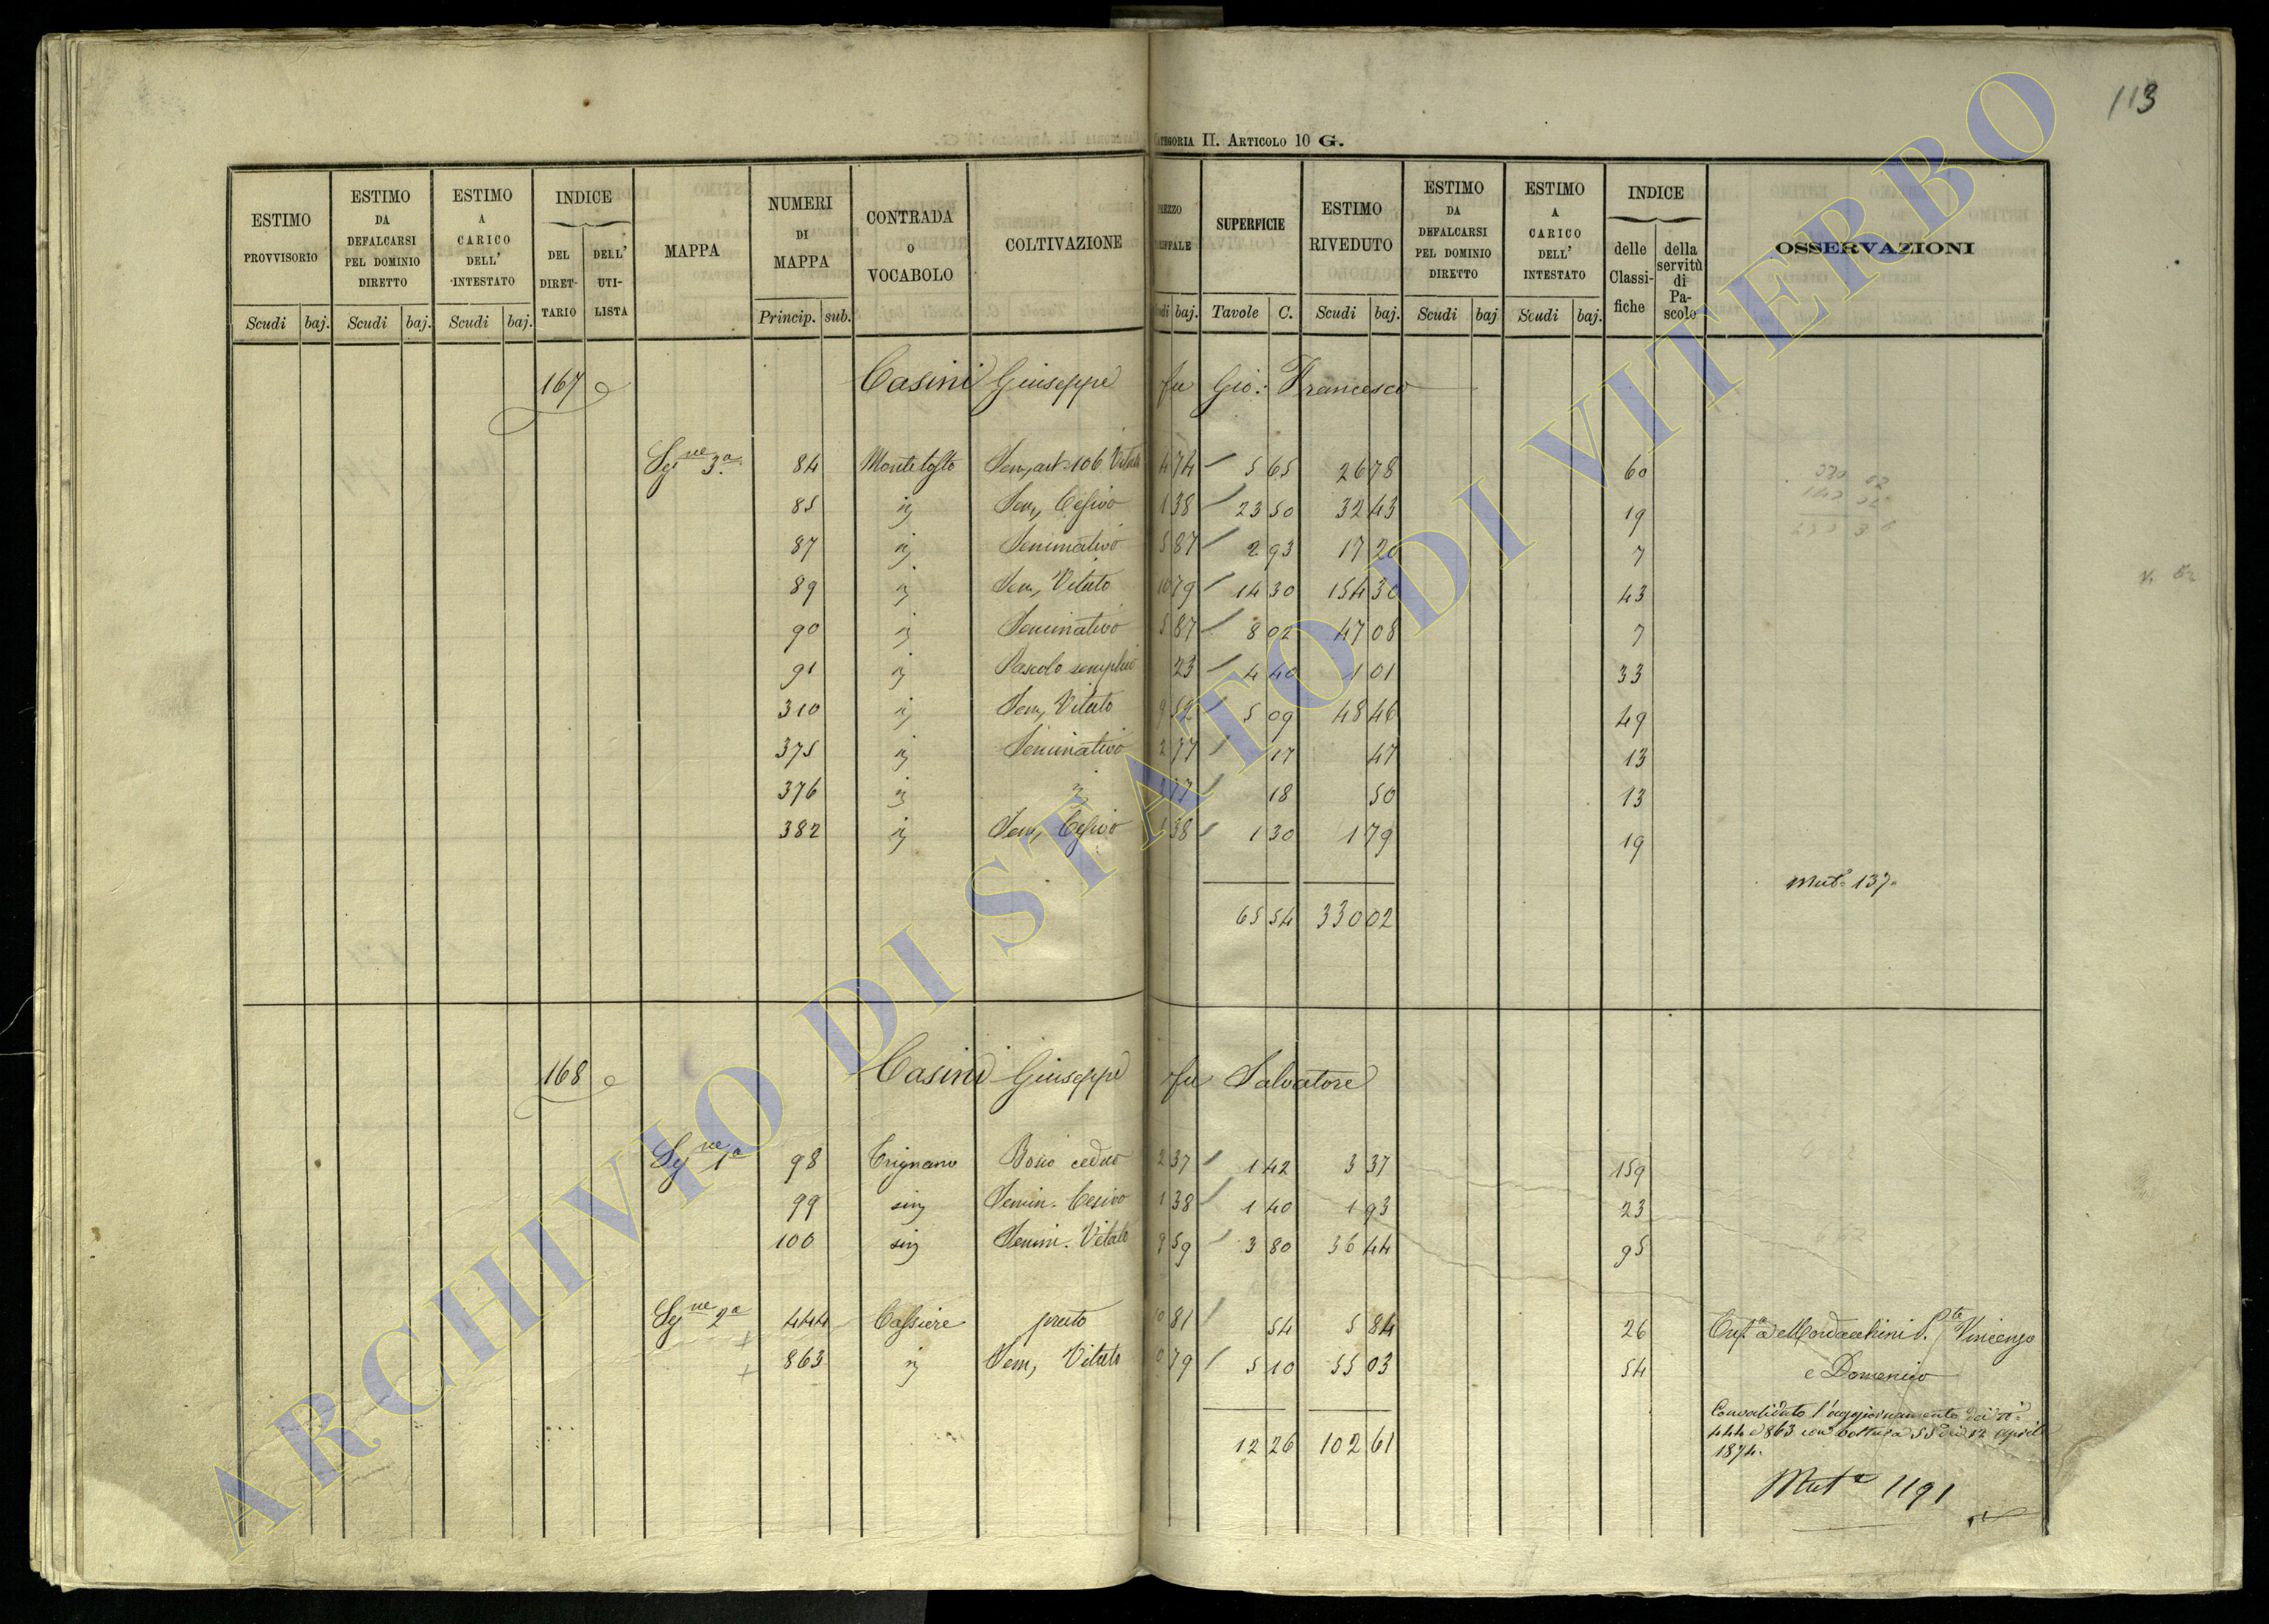 113
CATEGORIA II. ARTICOLO 10 G.
ESTIMO PROVVISORIO Scudi baj.
ESTIMO DA DEFALCARSI PEL DOMINIO DIRETTO Scudi baj.
ESTIMO A CARICO DELL' INTESTATO Scudi baj.
INDICE DEL DIRETTARIO DELL' UTILISTA
MAPPA
NUMERI DI MAPPA Princip. sub.
CONTRADA O VOCABOLO
COLTIVAZIONE
SUPERFICIE Tavole C.
ESTIMO RIVEDUTO Scudi baj.
ESTIMO DA DEFALCARSI PEL DOMINIO DIRETTO Scudi baj
ESTIMO A CARICO DELL' INTESTATO Scudi baj.
INDICE delle Classifiche della servitù di Pascolo
OSSERVAZIONI
167 Casini Giuseppe fu Gio: Francesco
84 5 65 26 78 60
85 Sem, Cesivo 1 38 23 50 32 43 19
87 Seminativo 5 87 2 93 17 20 7
89 Sem, Vitato 10 79 14 30 154 30 43
90 Seminativo 5 87 8 02 47 08 7
91 Pascolo semplice 23 4 40 1 01 33
310 Sem, Vitato 9 52 5 09 48 46 49
375 Seminativo 2 77 17 47 13
376 2 77 18 50 13
382 Sem, Cesivo 1 38 1 30 1 79 19
Mut.e 137
65 54 330 02
168 Casini Giuseppe fu Salvatore
98 Trignano Bosco ceduo 2 37 1 42 3 37 159
99 Semin. Cesivo 1 38 1 40 1 93 23
100 Semin. Vitato 9 59 3 80 36 44 95
444 prato 81 54 5 84 26 Vincenzo
863 Sem, Vitato 79 5 10 55 03 54 e Domenico
Convalidato l'aggiornamento dei n.i
444 e 863 con voltura 55 del 12 aprile
1874.
12 26 102 61
Mut.e 1191
ARCHIVIO DI STATO DI VITERBO